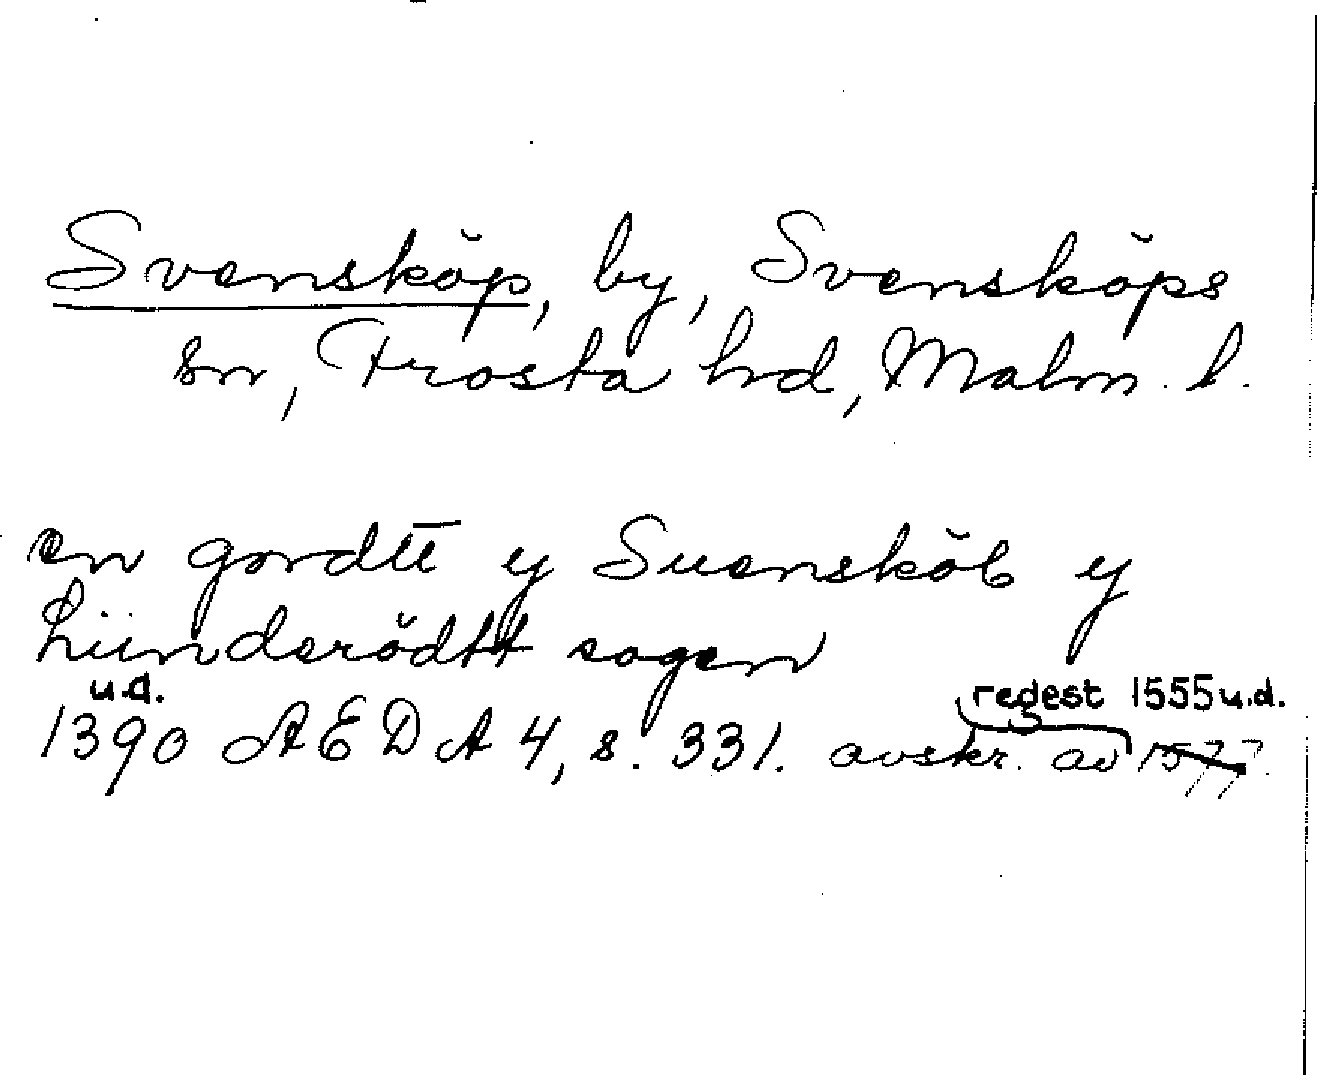 Svensköp, by, Svensköps
sn, Frosta hrd, Malm. l.
en gordtt y Suensköb y
hünderödtt sogen
u.d.
regest 1555 u.d.
1390 ÆDA 4, s. 331. avskr. av 1577.